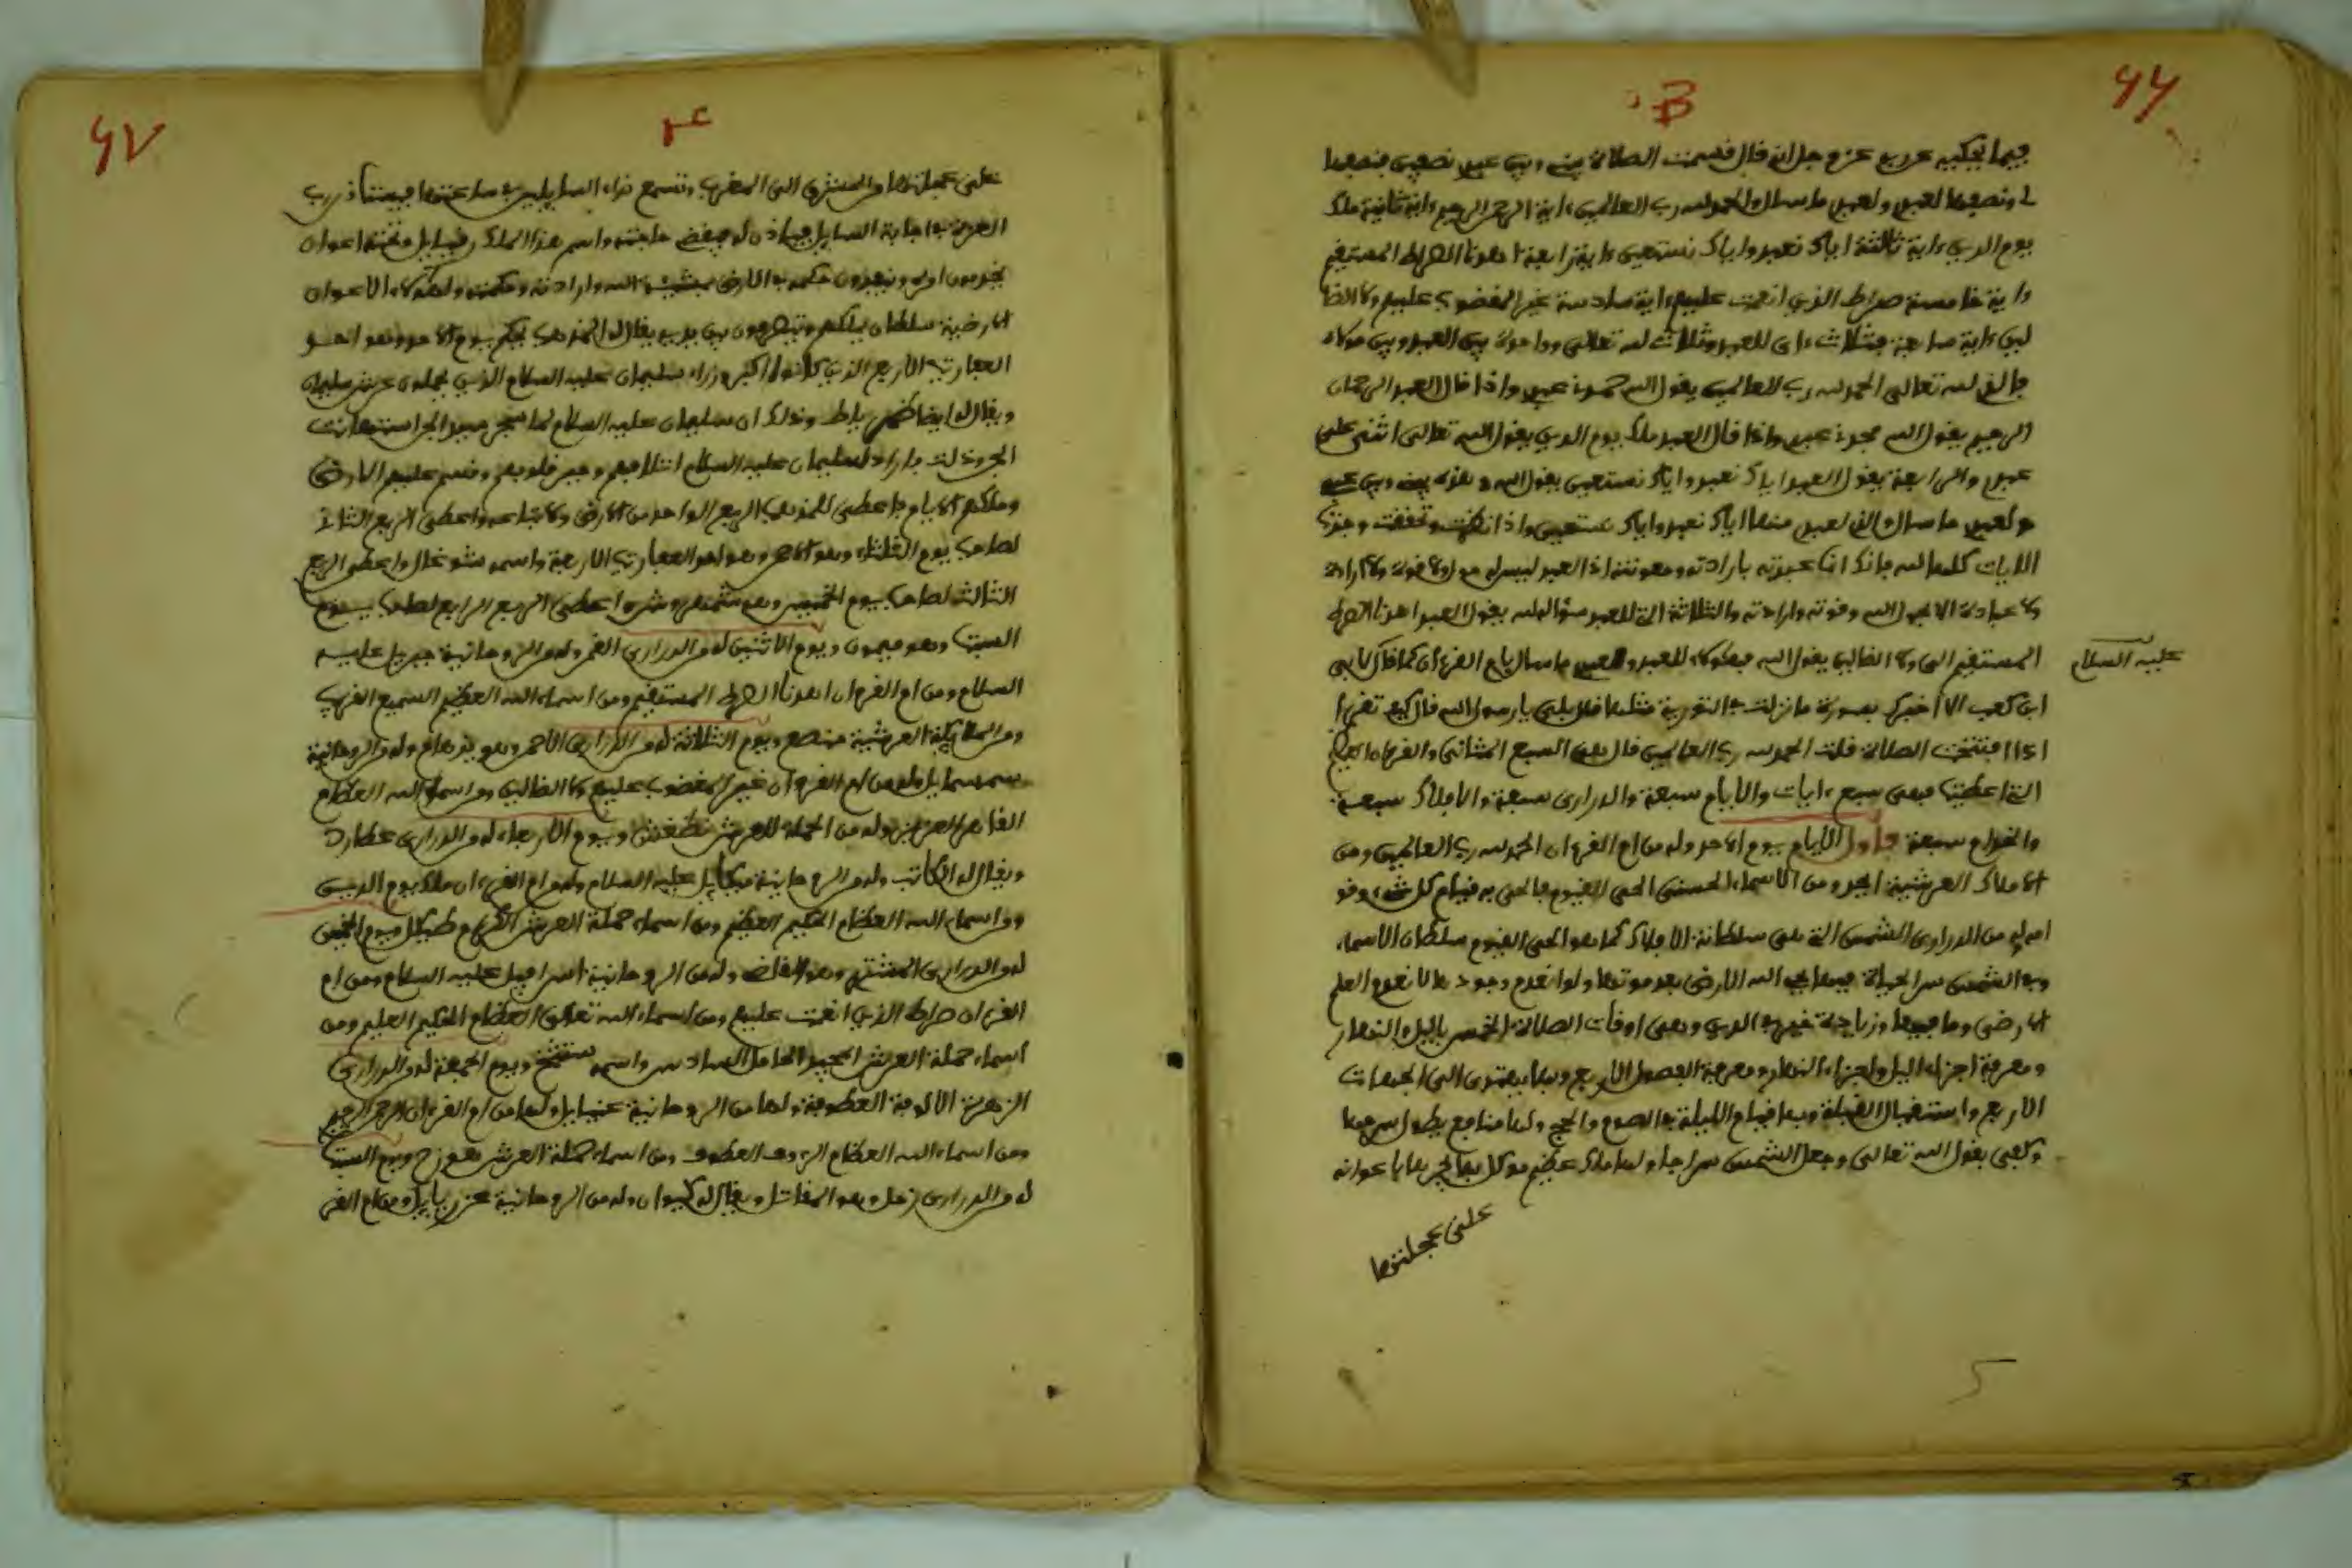 ٤٦
B
فيما يحكيه عن ربه عز وجل انه قال قسمت الصلاة بيني وبين عبدي نصفين فنصفها
لي ونصفها لعبدي ولعبدي ما سال والحمد لله رب العالمين ءاية الرحمن الرحيم ءاية ثانية ملك
يوم الدين ءاية ثالثة اياك نعبد واياك نستعين ءاية رابعة اهدنا الصراط المستقيم
ءاية خامسة صراط الذين انعمت عليهم ءاية سادسة غير المغضوب عليهم ولا الضا
لين ءاية سابعة فثلاث ءاي للعبد وثلاث لله تعالى وواحدة بين العبد وبين مولاه
فالتي لله تعالى الحمد لله رب العالمين يقول الله حمدني عبدي واذا قال العبد الرحمان
الرحيم يقول الله مجدني عبدي واذا قال العبد ملك يوم الدين يقول الله تعالى اثنى علي
عبدي والرابعة يقول العبد اياك نعبد واياك نستعين يقول الله هذه بيني وبين عبدي
ولعبدي ما سال والتي لعبدي منها اياك نعبد واياك نستعين واذا وتحققت وجدت
الايات كلها لله فانك انما عبدته بارادته ومعونته اذ العبد ليس له حول ولا قوة ولا ارادة
ولا عبادة الا بحول الله وقوته وارادته والثلاثة التي للعبد سؤاله لله يقول العبد اهدنا الصراط
المستقيم الى ولا الضالين يقول الله فهؤلاء للعبد ولعبدي ما سال يام القرءان كما قال لابي
عليه السلام
ابن كعب الا اخبرك بسورة ما نزلت في التورية مثلها قال بلى يا رسول الله قال كيف تقرأ
اذا افتتحت الصلاة قلت الحمد لله رب العالمين قال هي السبع المثاني والقرءان العظيم
التي اعطيت فهي سبع ءايات والايام سبعة والدراري سبعة والافلاك سبعة
والخدام سبعة فاول الايام يوم الاحد وله من ام القرءان الحمد لله رب العالمين ومن
الاملاك العرشية ابجد ومن الاسماء الحسنى الحي القيوم فالحي به قيام كل شيء وقو
امه وله من الدراري الشمس التي هي سلطانة الافلاك كما هو الحي القيوم سلطان الاسماء
وفي الشمس سر الحياة فيها يحيي الله الارض بعد موتها ولو انعدم وجودها لانعدم العلم
الارضي وما فيها وزيادة غيرها الدين وهي اوقات الصلاة الخمس بالليل والنهار
ومعرفة اجزاء الليل واجزاء النهار ومعرفة الفصول الاربع وبها يهتدى الى الجهات
الاربع واستقبال القبلة وبها قيام الليلة والصوم والحج ولها منافع يطول سردها
وكفى بقول الله تعالى وجعل الشمس سراجا ولها ملك عظيم موكل بها يجريها باعوانه
على عجلتها
٤٧
على عجلتها من المشرق الى المغرب وتسمع نداء السايلين في ساعتها فيستاذن رب
العزة في اجابة السايل فياذن له فيقضي حاجته واسم هذا الملك رقيايل وتحته اعوان
يخدمون امره وينفذون حكمه في الارض بمشيئة الله وارادته وحكمته ولهؤلاء الاعوان
الارضية سلطان يملكهم ويتصرفون بين يديه يقال له المذهب يحكم يوم الاحد وهو احد
العفاريت الاربع الذين كانوا اكبر وزراء سليمان عليه السلام الذين يحملون عرش سليمان
ويقال له ايضا وذلك ان سليمان عليه السلام لما سخر جميع الجن استهانت
الجن وذلت فاراد سليمان عليه السلام ائتلافهم وجبر قلوبهم وقسم عليهم الارض
وملكهم الايام فاعطى للمذهب الربع الواحد من الارض ولاتباعه واعطى الربع الثاني
لصاحب يوم الثلثاء وهو الاحمر وهو احد العفاريت الاربعة واسمه شوغال واعطى الربع
الثالث لصاحب يوم الخميس وهو شمهروش واعطى الربع الرابع لصاحب يوم
السبت وهو ميمون ويوم الاثنين له من الدراري القمر وله من الروحانية جبريل عليه
السلام ومن ام القرءان اهدنا الصراط المستقيم ومن اسماء الله العظيم السميع القريب
ومن الملايكة العرشية منصع ويوم الثلاثة له من الدراري الاحمر وهو بهرام وله من الروحانية
سمسمايل وله من ام القرءان غير المغضوب عليهم ولا الضالين ومن اسماء الله العظام
القاهر العزيز وله من الحملة للعرش ويوم الاربعاء له من الدراري عطارد
ويقال له الكاتب وله من الروحانية ميكايل عليه السلام وله من ام القرءان ملك يوم الدين
ومن اسماء الله العظام الحكيم العظيم ومن اسماء حملة العرش الكرام طيكل ويوم الخميس
له من الدراري المشتري وهو القاضي وله من الروحانية اسرافيل عليه السلام ومن ام
القرءان صراط الذين انعمت عليهم ومن اسماء الله تعالى العظام الحكيم العليم ومن
اسماء حملة العرش المجيد الحامل السادس واسمه ويوم الجمعة له من الدراري
الزهرة الالوفة العطوفة ولها من الروحانية عنيايل ولها من ام القرءان الرحمن الرحيم
ومن اسماء الله العظام الرءوف العطوف ومن اسماء حملة العرش ويوم السبت
له من الدراري زحل وهو المقاتل ويقال له كيوان وله من الروحانية عزريايل ومن ام القر